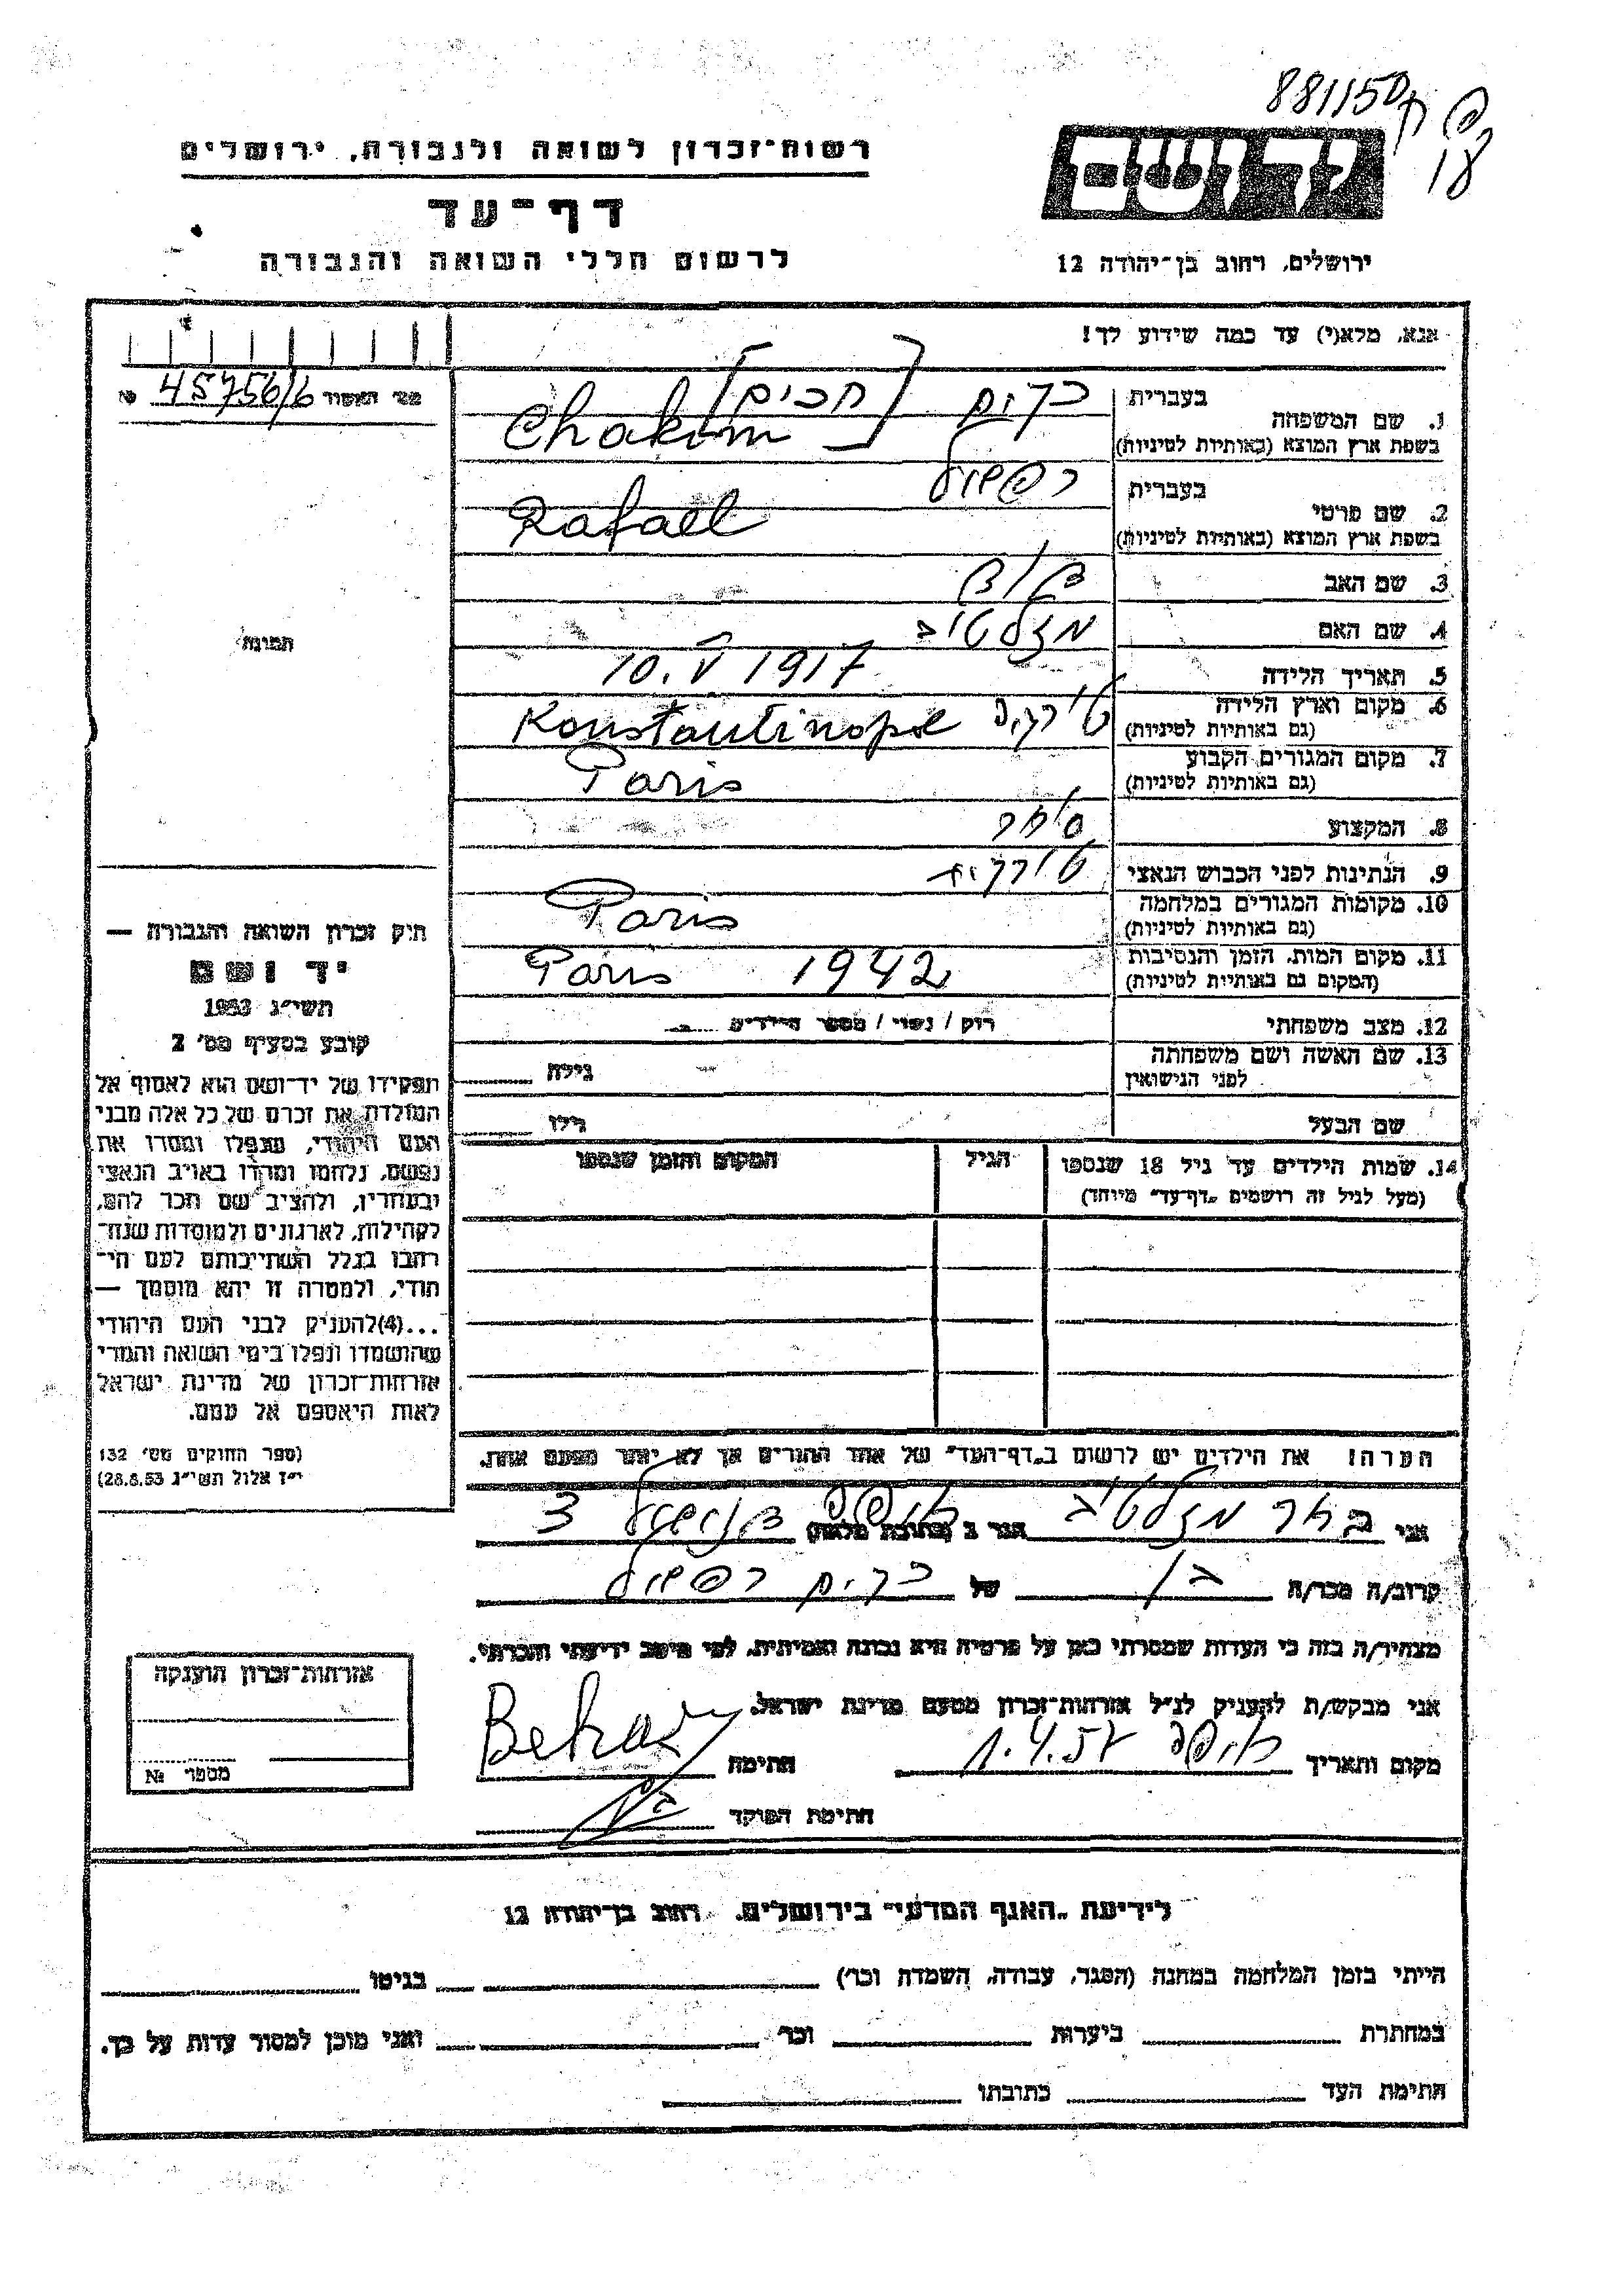 881150
18
רשות־זכרון לשואה ולגבורה, ירושלים
ידושם
דף־עד
לרשום חללי השואה והגבורה
ירושלים, רחוב בן־יהודה 12
אנא, מלא(י) עד כמה שידוע לך!
מס׳ האסוד 45756/6 №
תמונה
1. שם המשפחה
בעברית [חכים]
בשפת ארץ המוצא (באותיות לטיניות) Chakim
2. שם פרטי
בעברית רפאל
בשפת ארץ המוצא (באותיות לטיניות) Rafael
3. שם האב
4. שם האם מזלטוב
5. תאריך הלידה 10. V 1917
6. מקום וארץ הלידה
(גם באותיות לטיניות) Konstantinopel
7. מקום המגורים הקבוע
(גם באותיות לטיניות) Paris
8. המקצוע סוחר
9. הנתינות לפני הכבוש הנאצי טורקית
10. מקומות המגורים במלחמה
(גם באותיות לטיניות) Paris
11. מקום המות, הזמן והנסיבות
(המקום גם באותיות לטיניות) Paris 1942
12. מצב משפחתי רוק / נשוי / מספר הילדים
13. שם האשה ושם משפחתה
לפני הנישואין גילה
שם הבעל גילו
14. שמות הילדים עד גיל 18 שנספו
(מעל לגיל זה רושמים „דף־עד" מיוחד)
הגיל
המקום והזמן שנספו
הערה! את הילדים יש לרשום ב„דף־העד" של אחד ההורים אך לא יותר מפעם אחת.
חוק זכרון השואה והגבורה —
יד ושם
תשי״ג 1953
קובע בסעיף מס׳ 2
תפקידו של יד־ושם הוא לאסוף אל
המולדת את זכרם של כל אלה מבני
העם היהודי, שנפלו ומסרו את
נפשם, נלחמו ומרדו באויב הנאצי
ובעוזריו, ולהציב שם וזכר להם,
לקהילות, לארגונים ולמוסדות שנח־
רבו בגלל השתייכותם לעם הי־
הודי, ולמטרה זו יהא מוסמך —
...(4)להעניק לבני העם היהודי
שהושמדו ונפלו בימי השואה והמרי
אזרחות־זכרון של מדינת ישראל
לאות היאספם אל עמם.
(ספר החוקים מס׳ 132
י״ז אלול תשי״ג 28.8.53)
אני בכר מזלטוב הגר ב (כתובת מלאה) חיפה 3
קרוב/ה מכר/ה של רפאל
מצהיר/ה בזה כי העדות שמסרתי כאן על פרטיה היא נכונה ואמיתית, לפי מיטב ידיעתי והכרתי.
אני מבקש/ת להעניק לנ״ל אזרחות־זכרון מטעם מדינת ישראל.
מקום ותאריך חיפה 1.4.57 חתימה Behar
חתימת הפוקד
אזרחות־זכרון הוענקה
מספר №
לידיעת „האגף המדעי" בירושלים, רחוב בן־יהודה 12
הייתי בזמן המלחמה במחנה (הסגר, עבודה, השמדה וכר׳) בגיטו
במחתרת ביערות וכר׳ ואני מוכן למסור עדות על כך.
חתימת העד כתובתו